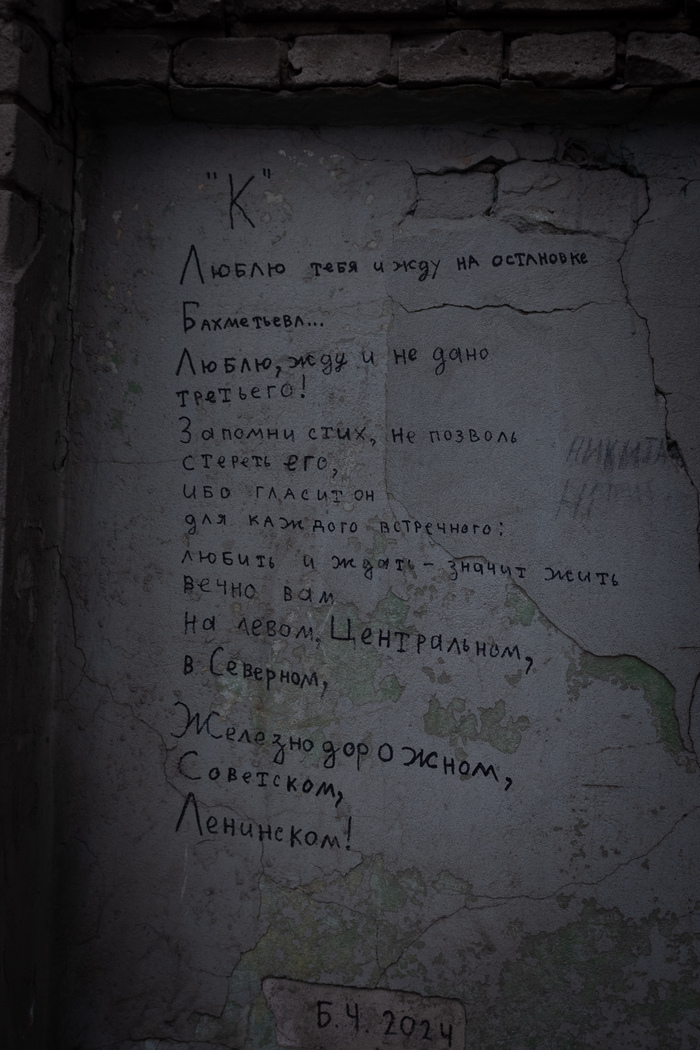 "К"
Люблю тебя и жду на остановке
Бахметьева...
Люблю, жду и не дано
третьего!
Запомни стих, не позволь
стереть его,
ибо гласит он
для каждого встречного:
любить и ждать - значит жить
вечно вам
на левом, Центральном,
в Северном,
Железнодорожном,
Советском,
Ленинском!
НИКИТА
Б.Ч. 2024